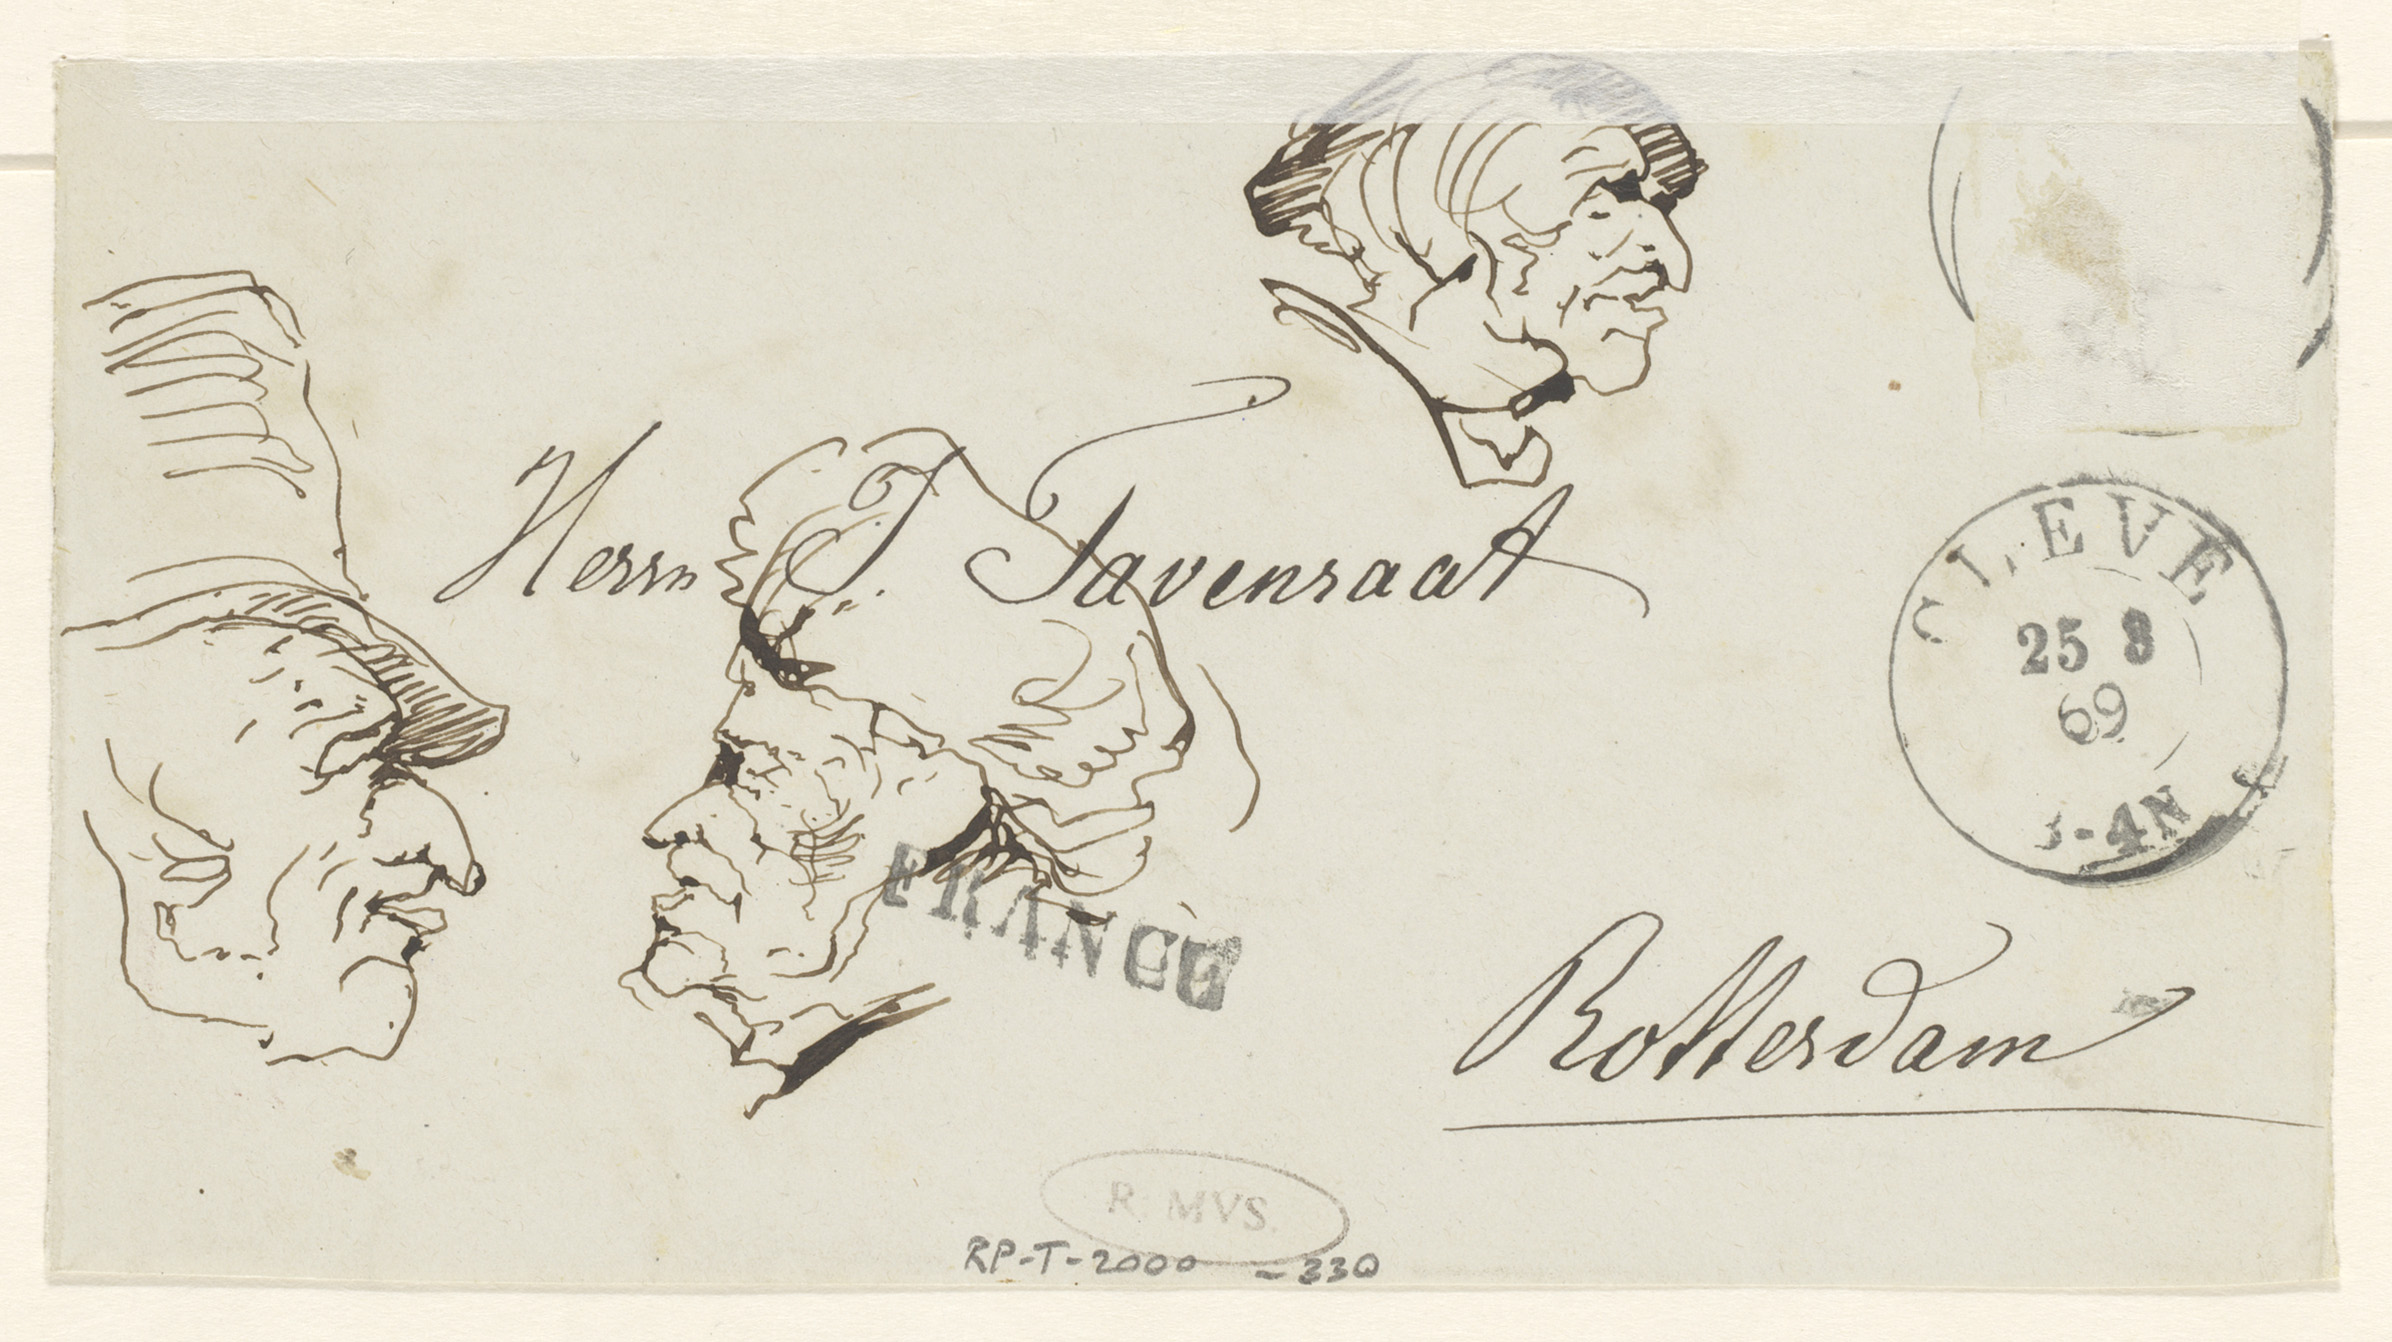 Herrn J. Tavenraat
CLEVE
25 8
69
-4N
FRANCO
Rotterdam
R. MVS.
RP-T-2000-330